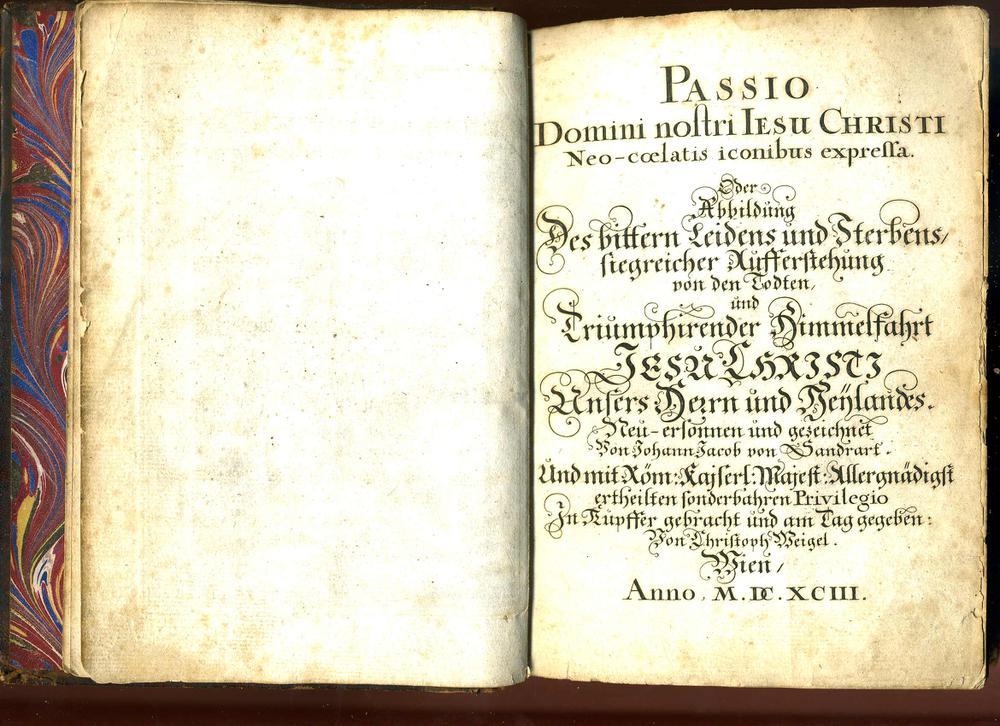 PASSIO
Domini noſtri IESU CHRISTI
Neo-cœlatis iconibus expreſſa.
Oder
Abbildŭng
Des bittern Leidens und Sterbens/
ſiegreicher Aŭfferſtehŭng
von den Todten/
und
Triumphirender Himmelfahrt
JESU CHRISTI
Unſers Herrn und Heÿlandes.
Neŭ-erſonnen und gezeichnet
Von Johann Jacob von Sandrart.
Und mit Röm: Kaÿſerl: Majeſt: Allergnädigſt
ertheilten ſonderbahren Privilegio
In Kupffer gebracht und am Tag gegeben:
Von Chriſtoph Weigel.
Wien/
Anno, M.DC.XCIII.